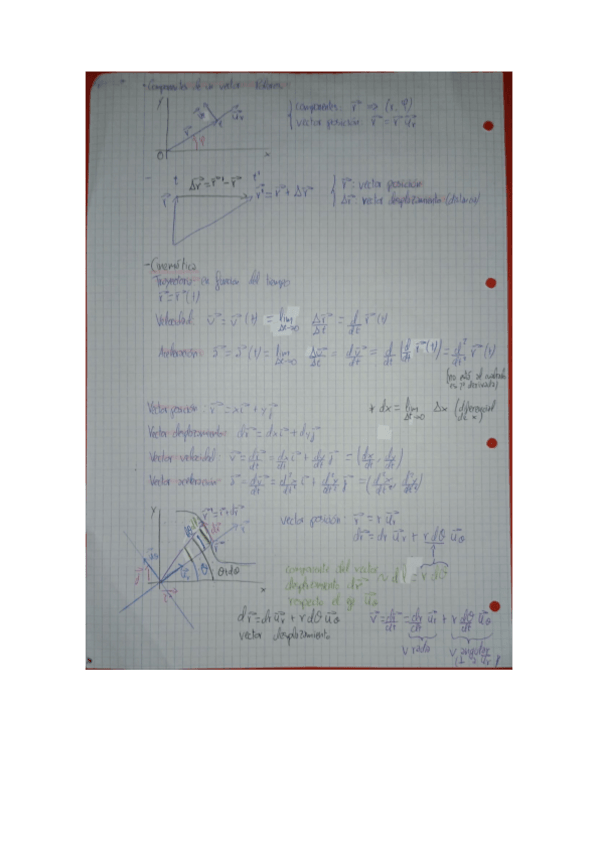 - Componentes de un vector
y
O
x
componentes: r⃗ ⇒ (r, φ)
vector posición: r⃗ = r u⃗r
t
t'
Δr⃗ = r⃗' - r⃗
r⃗
r⃗' = r⃗ + Δr⃗
r⃗: vector posición
Δr⃗: vector desplazamiento
- Cinemática
Trayectoria en función del tiempo
r⃗ = r⃗(t)
Velocidad: v⃗ = v⃗(t) = lim Δt→0 Δr⃗/Δt = d/dt r⃗(t)
Aceleración: a⃗ = a⃗(t) = lim Δt→0 Δv⃗/Δt = dv⃗/dt = d/dt (d/dt r⃗(t)) = d²/dt² r⃗(t)
* dx = lim Δt→0 Δx (diferencial de x)
Vector posición: r⃗ = x i⃗ + y j⃗
Vector desplazamiento: dr⃗ = dx i⃗ + dy j⃗
Vector velocidad: v⃗ = dr⃗/dt = dx/dt i⃗ + dy/dt j⃗ = (dx/dt, dy/dt)
Vector aceleración: a⃗ = dv⃗/dt = d²x/dt² i⃗ + d²y/dt² j⃗ = (d²x/dt², d²y/dt²)
y
r⃗' = r⃗ + dr⃗
dr⃗
r⃗
θ
u⃗r
x
vector posición: r⃗ = r u⃗r
dr⃗ = dr u⃗r + r dθ u⃗θ
componente del vector
desplazamiento dr⃗
respecto al eje u⃗θ
dr⃗ = dr u⃗r + r dθ u⃗θ
vector desplazamiento
v⃗ = dr⃗/dt = dr/dt u⃗r + r dθ/dt u⃗θ
v angular